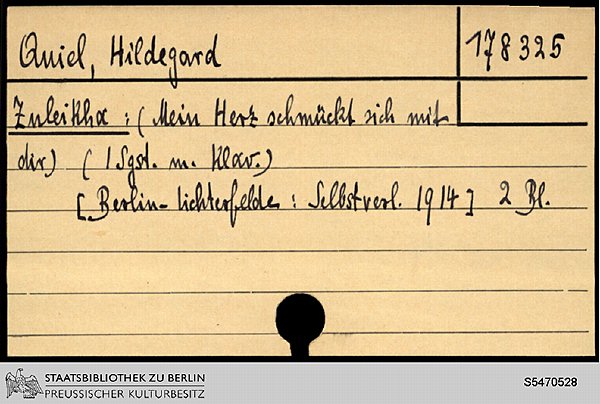 Quiel, Hildegard
178325
Zuleikha : (Mein Herz schmückt sich mit
dir) (1 Sgst. m. Klav.)
[Berlin-Lichterfelde : Selbstverl. 1914] 2 Bl.
STAATSBIBLIOTHEK ZU BERLIN
PREUSSISCHER KULTURBESITZ
S5470528